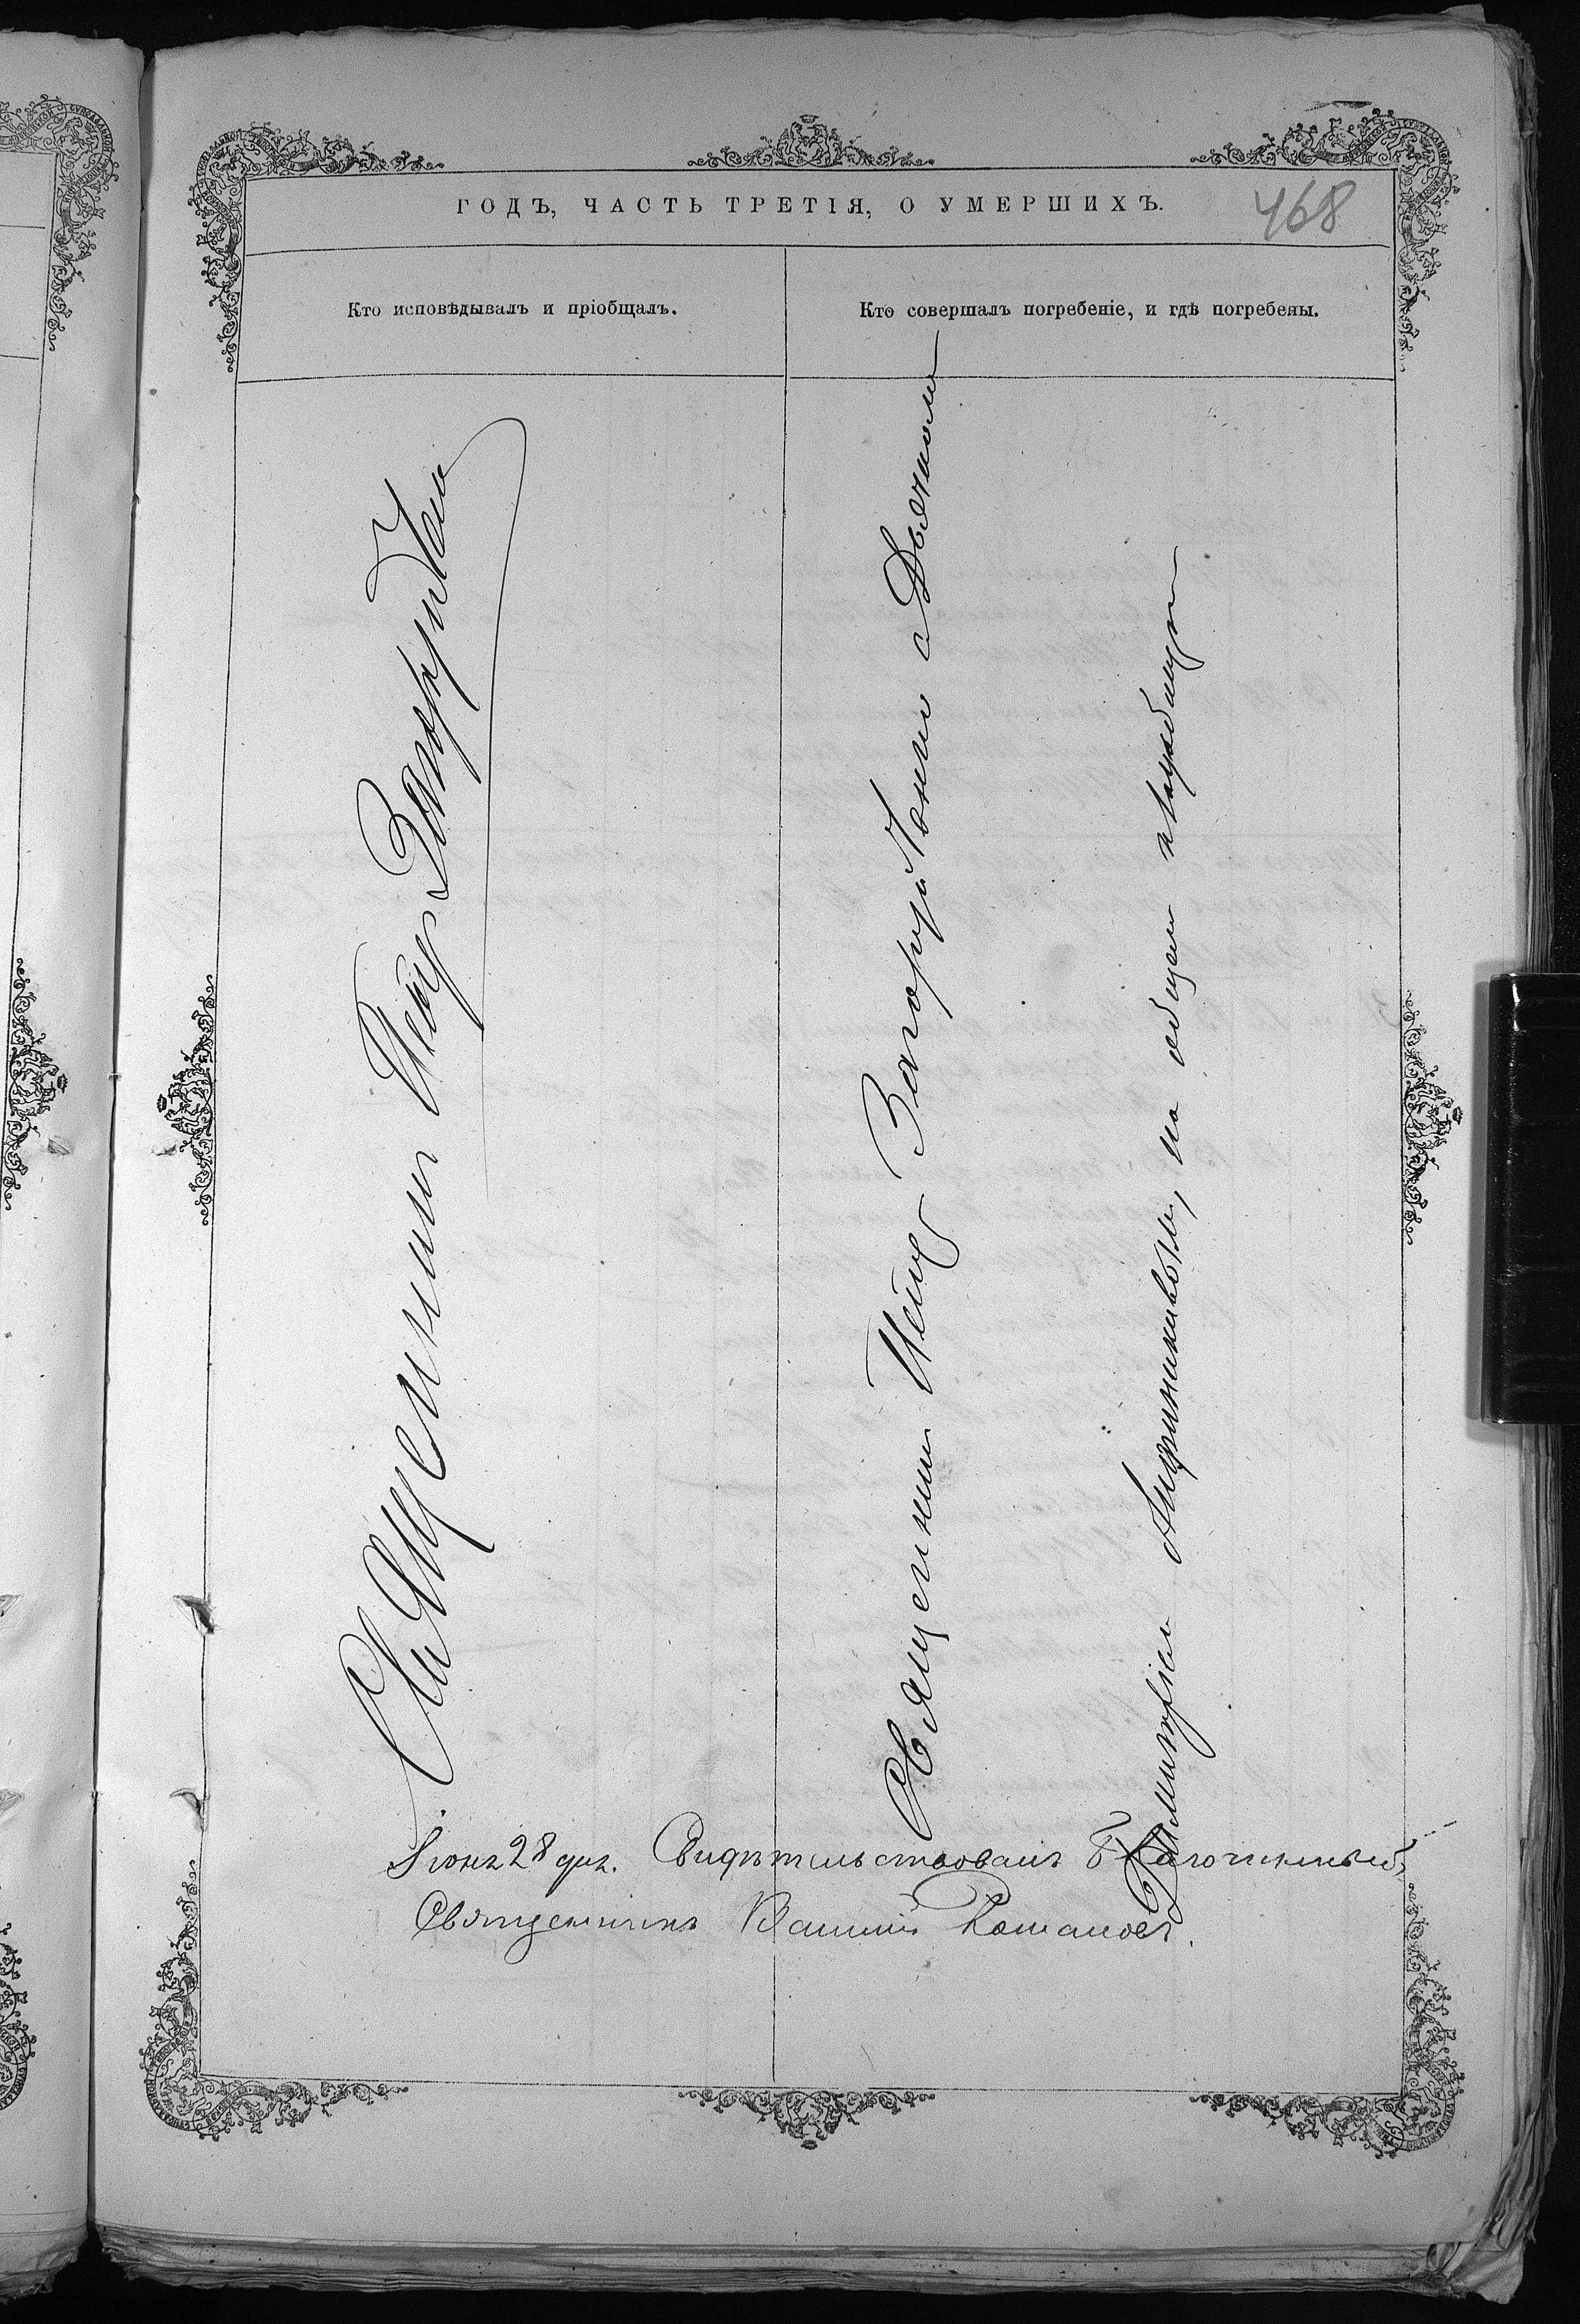 ГОДЪ, ЧАСТЬ ТРЕТІЯ, О УМЕРШИХЪ.
468
Кто исповѣдывалъ и пріобщалъ.
Кто совершалъ погребеніе, и гдѣ погребены.
Священникъ Петръ
Священникъ Петръ съ Дьячкомъ
Димитріемъ на общемъ кладбищѣ
Іюня 28 дня. Свидѣтельствовалъ Благочинный,
Священникъ Романовъ.